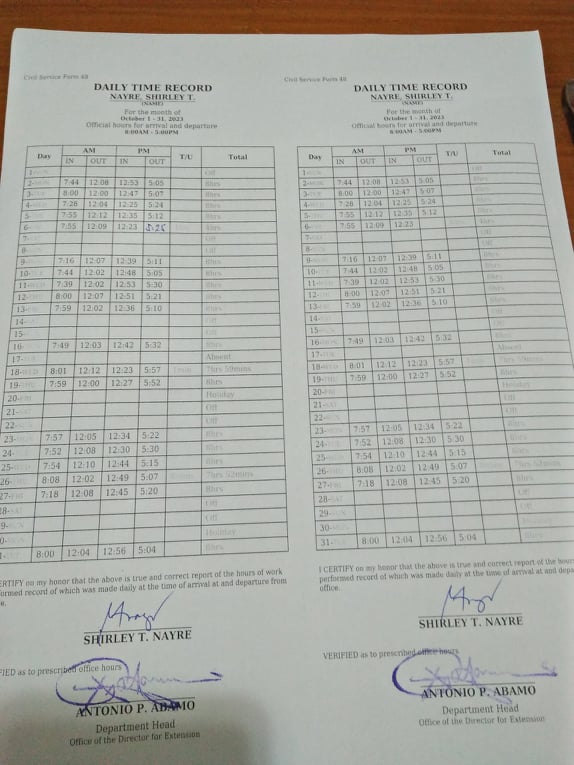 Civil Service Form 48
DAILY TIME RECORD
NAYRE, SHIRLEY T.
(NAME)
For the month of
October 1 - 31, 2023
Official hours for arrival and departure
8:00AM - 5:00PM
Day AM PM T/U Total
IN OUT IN OUT
1-SUN Off
2-MON 7:44 12:08 12:53 5:05 8hrs
3-TUE 8:00 12:00 12:47 5:07 8hrs
4-WED 7:28 12:04 12:25 5:24 8hrs
5-THU 7:55 12:12 12:35 5:12 8hrs
6-FRI 7:55 12:09 12:23 5:25 4hrs
7-SAT Off
8-SUN Off
9-MON 7:16 12:07 12:39 5:11 8hrs
10-TUE 7:44 12:02 12:48 5:05 8hrs
11-WED 7:39 12:02 12:53 5:30 8hrs
12-THU 8:00 12:07 12:51 5:21 8hrs
13-FRI 7:59 12:02 12:36 5:10 8hrs
14-SAT Off
15-SUN Off
16-MON 7:49 12:03 12:42 5:32 8hrs
17-TUE Absent
18-WED 8:01 12:12 12:23 5:57 1min 7hrs 59mins
19-THU 7:59 12:00 12:27 5:52 8hrs
20-FRI Holiday
21-SAT Off
22-SUN Off
23-MON 7:57 12:05 12:34 5:22 8hrs
24-TUE 7:52 12:08 12:30 5:30 8hrs
25-WED 7:54 12:10 12:44 5:15 8hrs
26-THU 8:08 12:02 12:49 5:07 8mins 7hrs 52mins
27-FRI 7:18 12:08 12:45 5:20 8hrs
28-SAT Off
29-SUN Off
30-MON Holiday
-TUE 8:00 12:04 12:56 5:04 8hrs
ERTIFY on my honor that the above is true and correct report of the hours of work
formed record of which was made daily at the time of arrival at and departure from
e.
SHIRLEY T. NAYRE
FIED as to prescribed office hours
ANTONIO P. ABAMO
Department Head
Office of the Director for Extension
Civil Service Form 48
DAILY TIME RECORD
NAYRE, SHIRLEY T.
(NAME)
For the month of
October 1 - 31, 2023
Official hours for arrival and departure
8:00AM - 5:00PM
Day AM PM T/U Total
IN OUT IN OUT
1-SUN Off
2-MON 7:44 12:08 12:53 5:05 8hrs
3-TUE 8:00 12:00 12:47 5:07 8hrs
4-WED 7:28 12:04 12:25 5:24 8hrs
5-THU 7:55 12:12 12:35 5:12 8hrs
6-FRI 7:55 12:09 12:23 4hrs
7-SAT Off
8-SUN Off
9-MON 7:16 12:07 12:39 5:11 8hrs
10-TUE 7:44 12:02 12:48 5:05 8hrs
11-WED 7:39 12:02 12:53 5:30 8hrs
12-THU 8:00 12:07 12:51 5:21 8hrs
13-FRI 7:59 12:02 12:36 5:10 8hrs
14-SAT Off
15-SUN Off
16-MON 7:49 12:03 12:42 5:32 8hrs
17-TUE Absent
18-WED 8:01 12:12 12:23 5:57 1min 7hrs 59mins
19-THU 7:59 12:00 12:27 5:52 8hrs
20-FRI Holiday
21-SAT Off
22-SUN Off
23-MON 7:57 12:05 12:34 5:22 8hrs
24-TUE 7:52 12:08 12:30 5:30 8hrs
25-WED 7:54 12:10 12:44 5:15 8hrs
26-THU 8:08 12:02 12:49 5:07 8mins 7hrs 52mins
27-FRI 7:18 12:08 12:45 5:20 8hrs
28-SAT Off
29-SUN Off
30-MON Holiday
31-TUE 8:00 12:04 12:56 5:04 8hrs
I CERTIFY on my honor that the above is true and correct report of the hours
performed record of which was made daily at the time of arrival at and depa
office.
SHIRLEY T. NAYRE
VERIFIED as to prescribed office hours
ANTONIO P. ABAMO
Department Head
Office of the Director for Extension